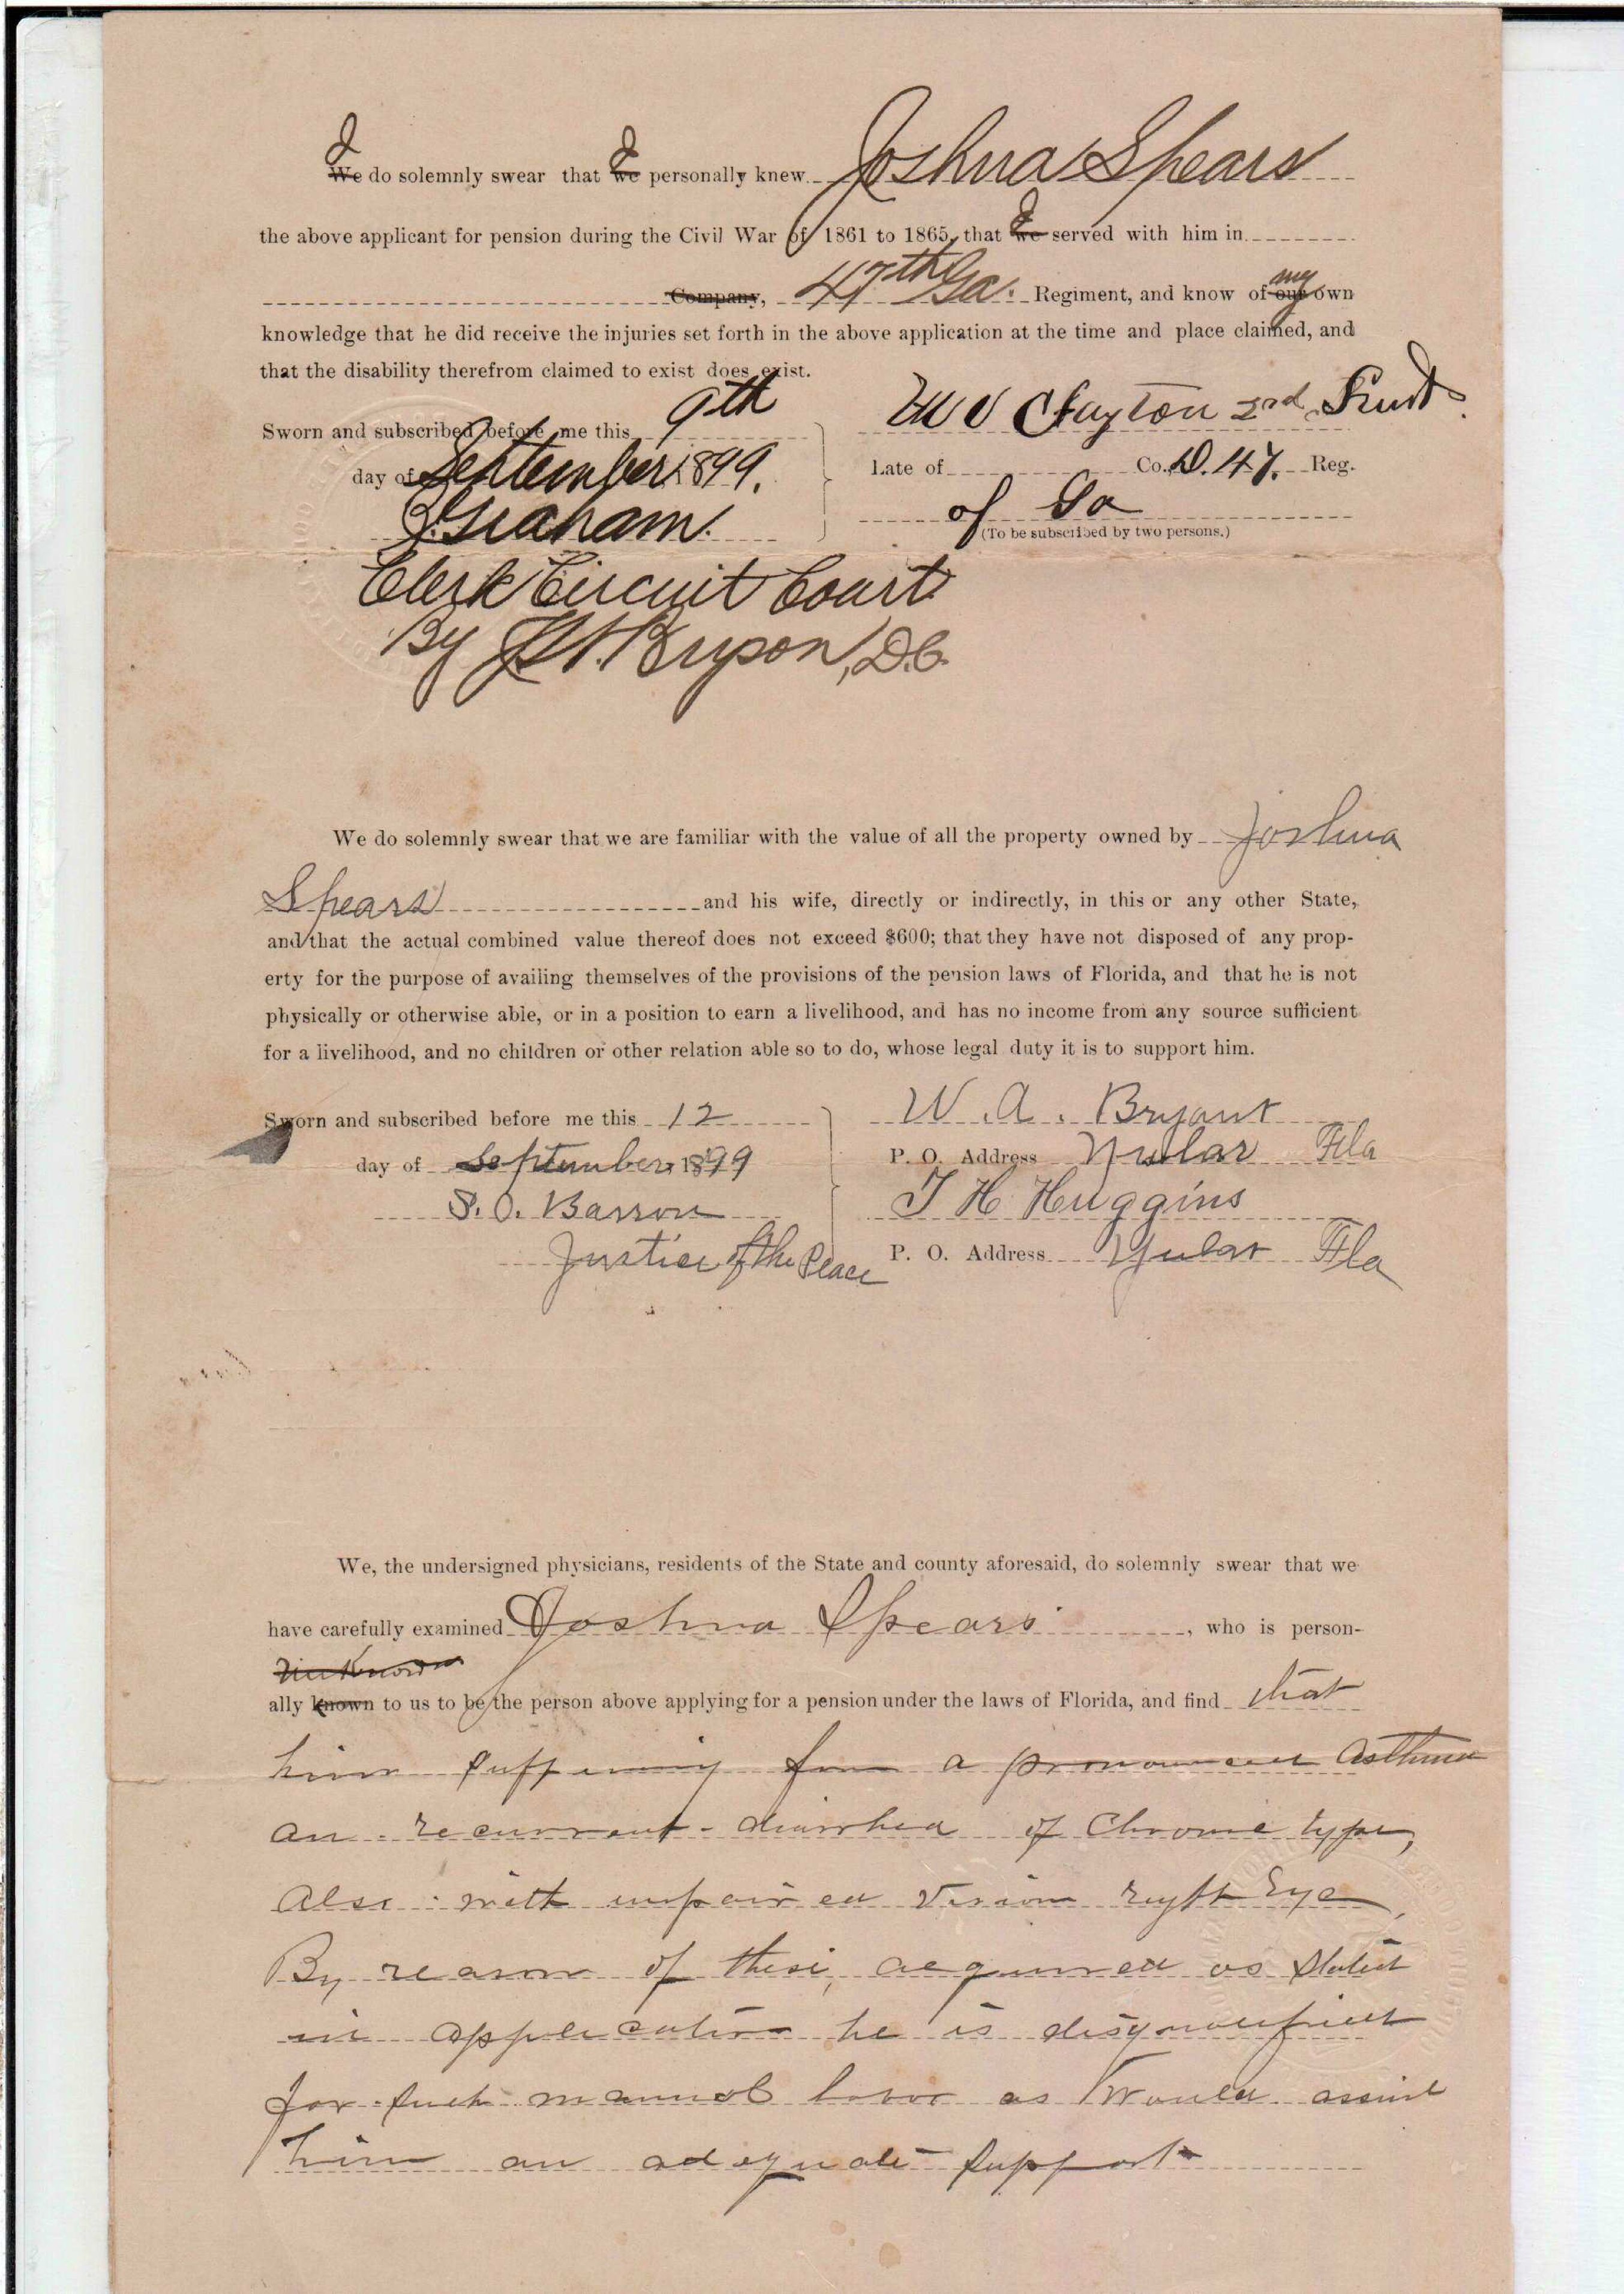 I I
We do solemnly swear that we personally knew Joshua Spears
I
the above applicant for pension during the Civil War of 1861 to 1865, that we served with him in
my
Company, 47th Ga. Regiment, and know of our own
knowledge that he did receive the injuries set forth in the above application at the time and place claimed, and
that the disability therefrom claimed to exist does exist.
Sworn and subscribed before me this 9th
Clayton 2nd
day of September 1899.
Late of Co. D. 47. Reg.
Graham.
of Ga
(To be subscribed by two persons.)
Clerk Circuit Court
By Bryson, D.C.
We do solemnly swear that we are familiar with the value of all the property owned by Joshua
Spears and his wife, directly or indirectly, in this or any other State,
and that the actual combined value thereof does not exceed $600; that they have not disposed of any prop-
erty for the purpose of availing themselves of the provisions of the pension laws of Florida, and that he is not
physically or otherwise able, or in a position to earn a livelihood, and has no income from any source sufficient
for a livelihood, and no children or other relation able so to do, whose legal duty it is to support him.
Sworn and subscribed before me this 12
W. A. Bryant
day of September 1899
P. O. Address Fla
S. O. Barron
T H Huggins
Justice of the Peace
P. O. Address Yular Fla
We, the undersigned physicians, residents of the State and county aforesaid, do solemnly swear that we
have carefully examined Joshua Spears, who is person-
unknown
ally known to us to be the person above applying for a pension under the laws of Florida, and find that
him suffering from a pronounced Asthma
an recurrent diarrhea of Chronic type,
Also with impaired vision right Eye,
By reason of these, acquired as stated
in application he is
for such manual labor as would
him an adequate support